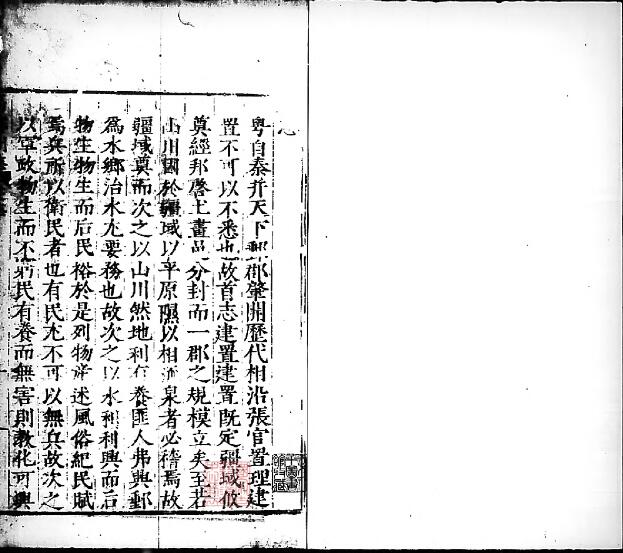 粤自秦并天下鄞郡肇開歷代相沿張官置理建
置不可以不悉也故首志建置建置既定疆域攸
奠經邦啓土畫邑分封而一郡之規模立矣至若
山川國於疆域以平原隰以相流泉者必稽焉故
疆域奠而次之以山川然地利有養匪人弗興鄞
為水鄉治水尤要務也故次之以水利利興而后
物生物生而后民裕於是列物産述風俗紀民賦
焉兵所以衛民者也有民尤不可以無兵故次之
以軍政物生而不窮民有養而無害則教化可興